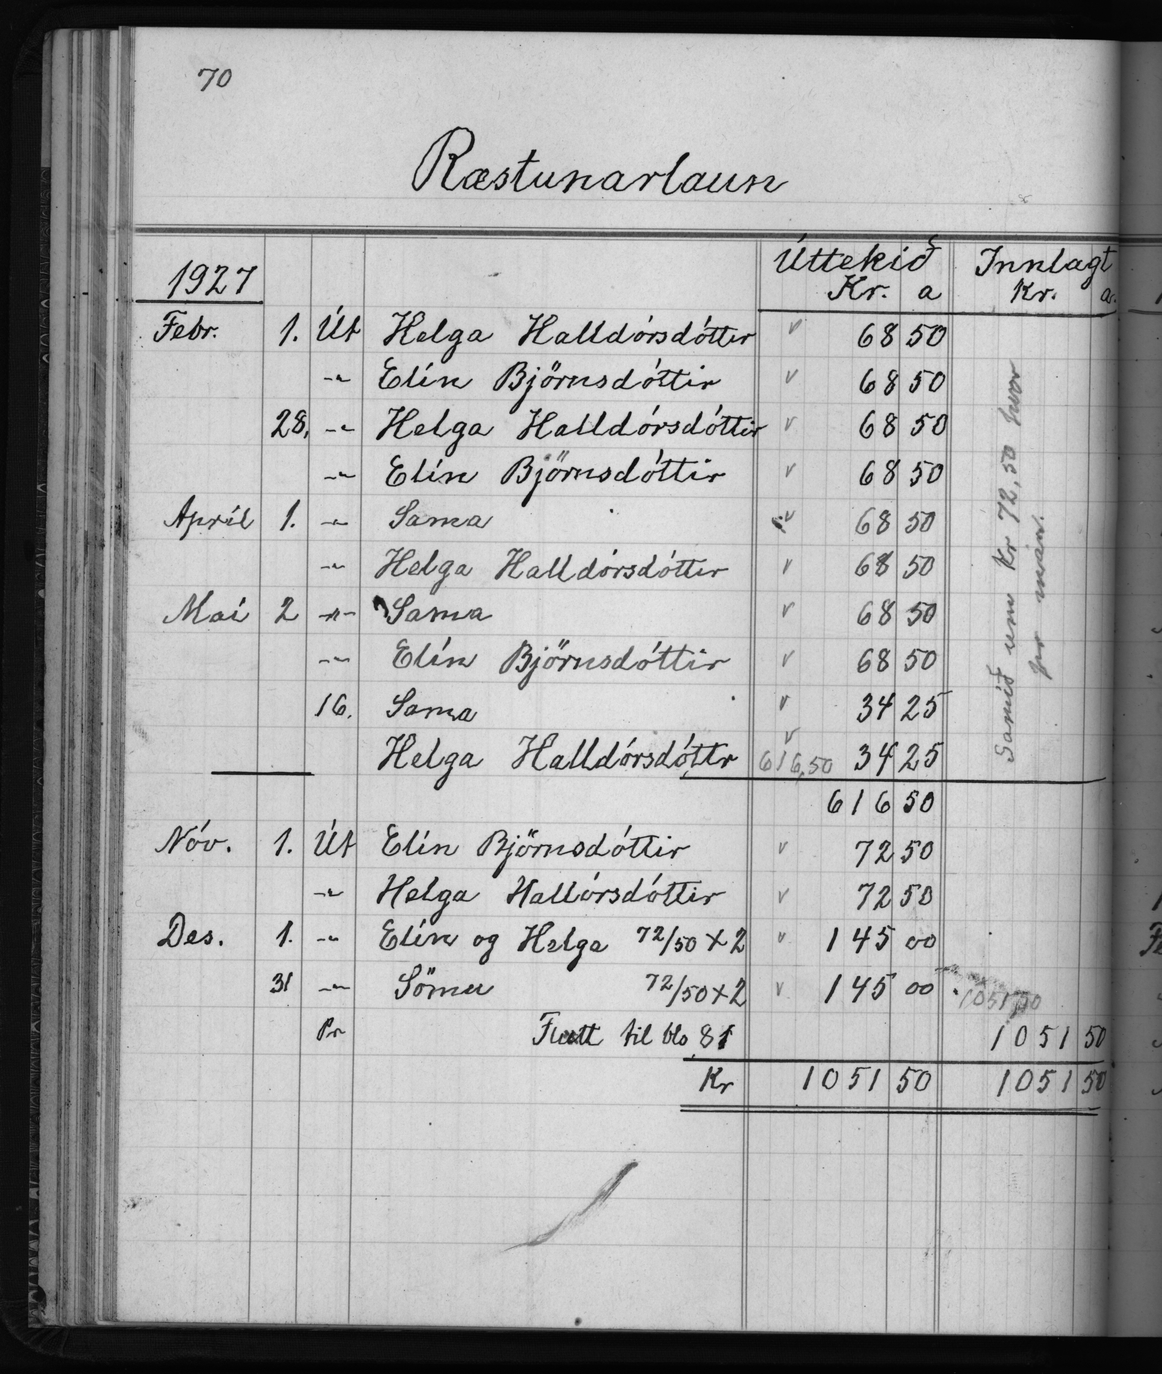 70
Ræstunarlaun
1927 Úttekið Innlagt
Kr. a Kr. a.
Febr. 1. Út Helga Halldórsdóttir v 68 50
-"- Elín Björnsdóttir v 68 50
28. -"- Helga Halldórsdóttir v 68 50
-"- Elín Björnsdóttir v 68 50
Apríl 1. -"- Sama v 68 50
-"- Helga Halldórsdóttir v 68 50
Maí 2 -"- Sama v 68 50
-"- Elín Björnsdóttir v 68 50
16. Sama v 34 25
Helga Halldórsdóttir v 616,50 34 25
616 50
Samið um Kr 72,50 hvor
per mán.
Nóv. 1. Út Elín Björnsdóttir v 72 50
-"- Helga Hallórsdóttir v 72 50
Des. 1. -"- Elín og Helga 72/50 x 2 v 145 00
31 -"- Sömu 72/50 x 2 v 145 00 1051,50
Pr Flutt til bls 81 1051 50
Kr 1051 50 1051 50